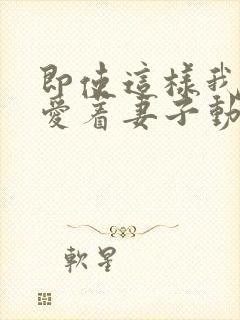 即使這樣我
愛着妻子動
軟星